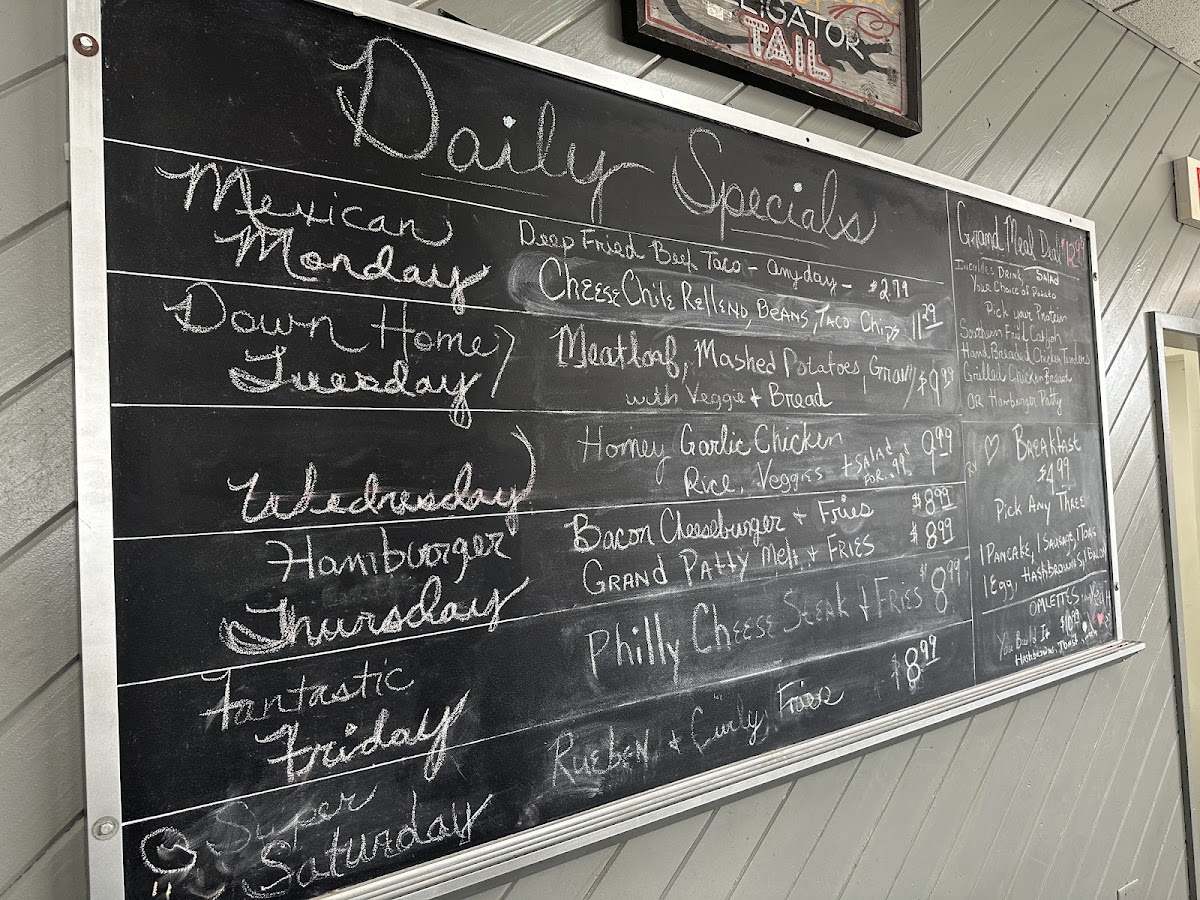 LIGATOR
TAIL
Daily Specials
Mexican
Monday
Deep Fried Beef Taco - anyday - $2.79
Cheese Chile Relleno, Beans, Taco Chips 11.29
Down Home
Tuesday
Meatloaf, Mashed Potatoes, Gravy
with Veggie & Bread $9.99
Wednesday
Honey Garlic Chicken
Rice, Veggies + Salad for .99! 9.99
Hamburger
Thursday
Bacon Cheeseburger + Fries $8.99
Grand Patty Melt + Fries $8.99
Fantastic
Friday
Philly Cheese Steak & Fries $8.99
Super
Saturday
Rueben & Curly Fries $8.99
Grand Meal Deal $12.99
Includes Drink, Salad
Your Choice of Potato
Pick your Protein
Southern Fried Catfish
Hand Breaded Chicken Tenders
Grilled Chicken Breast
OR Hamburger Patty
Breakfast
$4.99
Pick Any Three
1 Pancake, 1 Sausage, 1 Toast
1 Egg, Hashbrowns, 1 Bacon
OMLETTES
You Build It $10.99
Hashbrowns, Toast